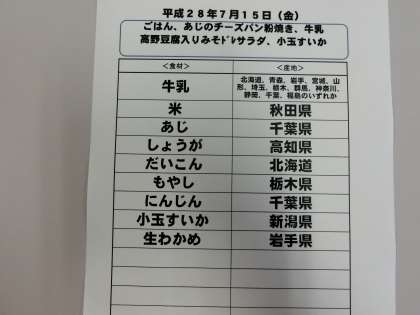 平成２８年７月１５日（金）
ごはん、あじのチーズパン粉焼き、牛乳
高野豆腐入りみそﾄﾞﾚサラダ、小玉すいか
＜食材＞ ＜産地＞
牛乳 北海道、青森、岩手、宮城、山
形、埼玉、栃木、群馬、神奈川、
静岡、千葉、福島のいずれか
米 秋田県
あじ 千葉県
しょうが 高知県
だいこん 北海道
もやし 栃木県
にんじん 千葉県
小玉すいか 新潟県
生わかめ 岩手県